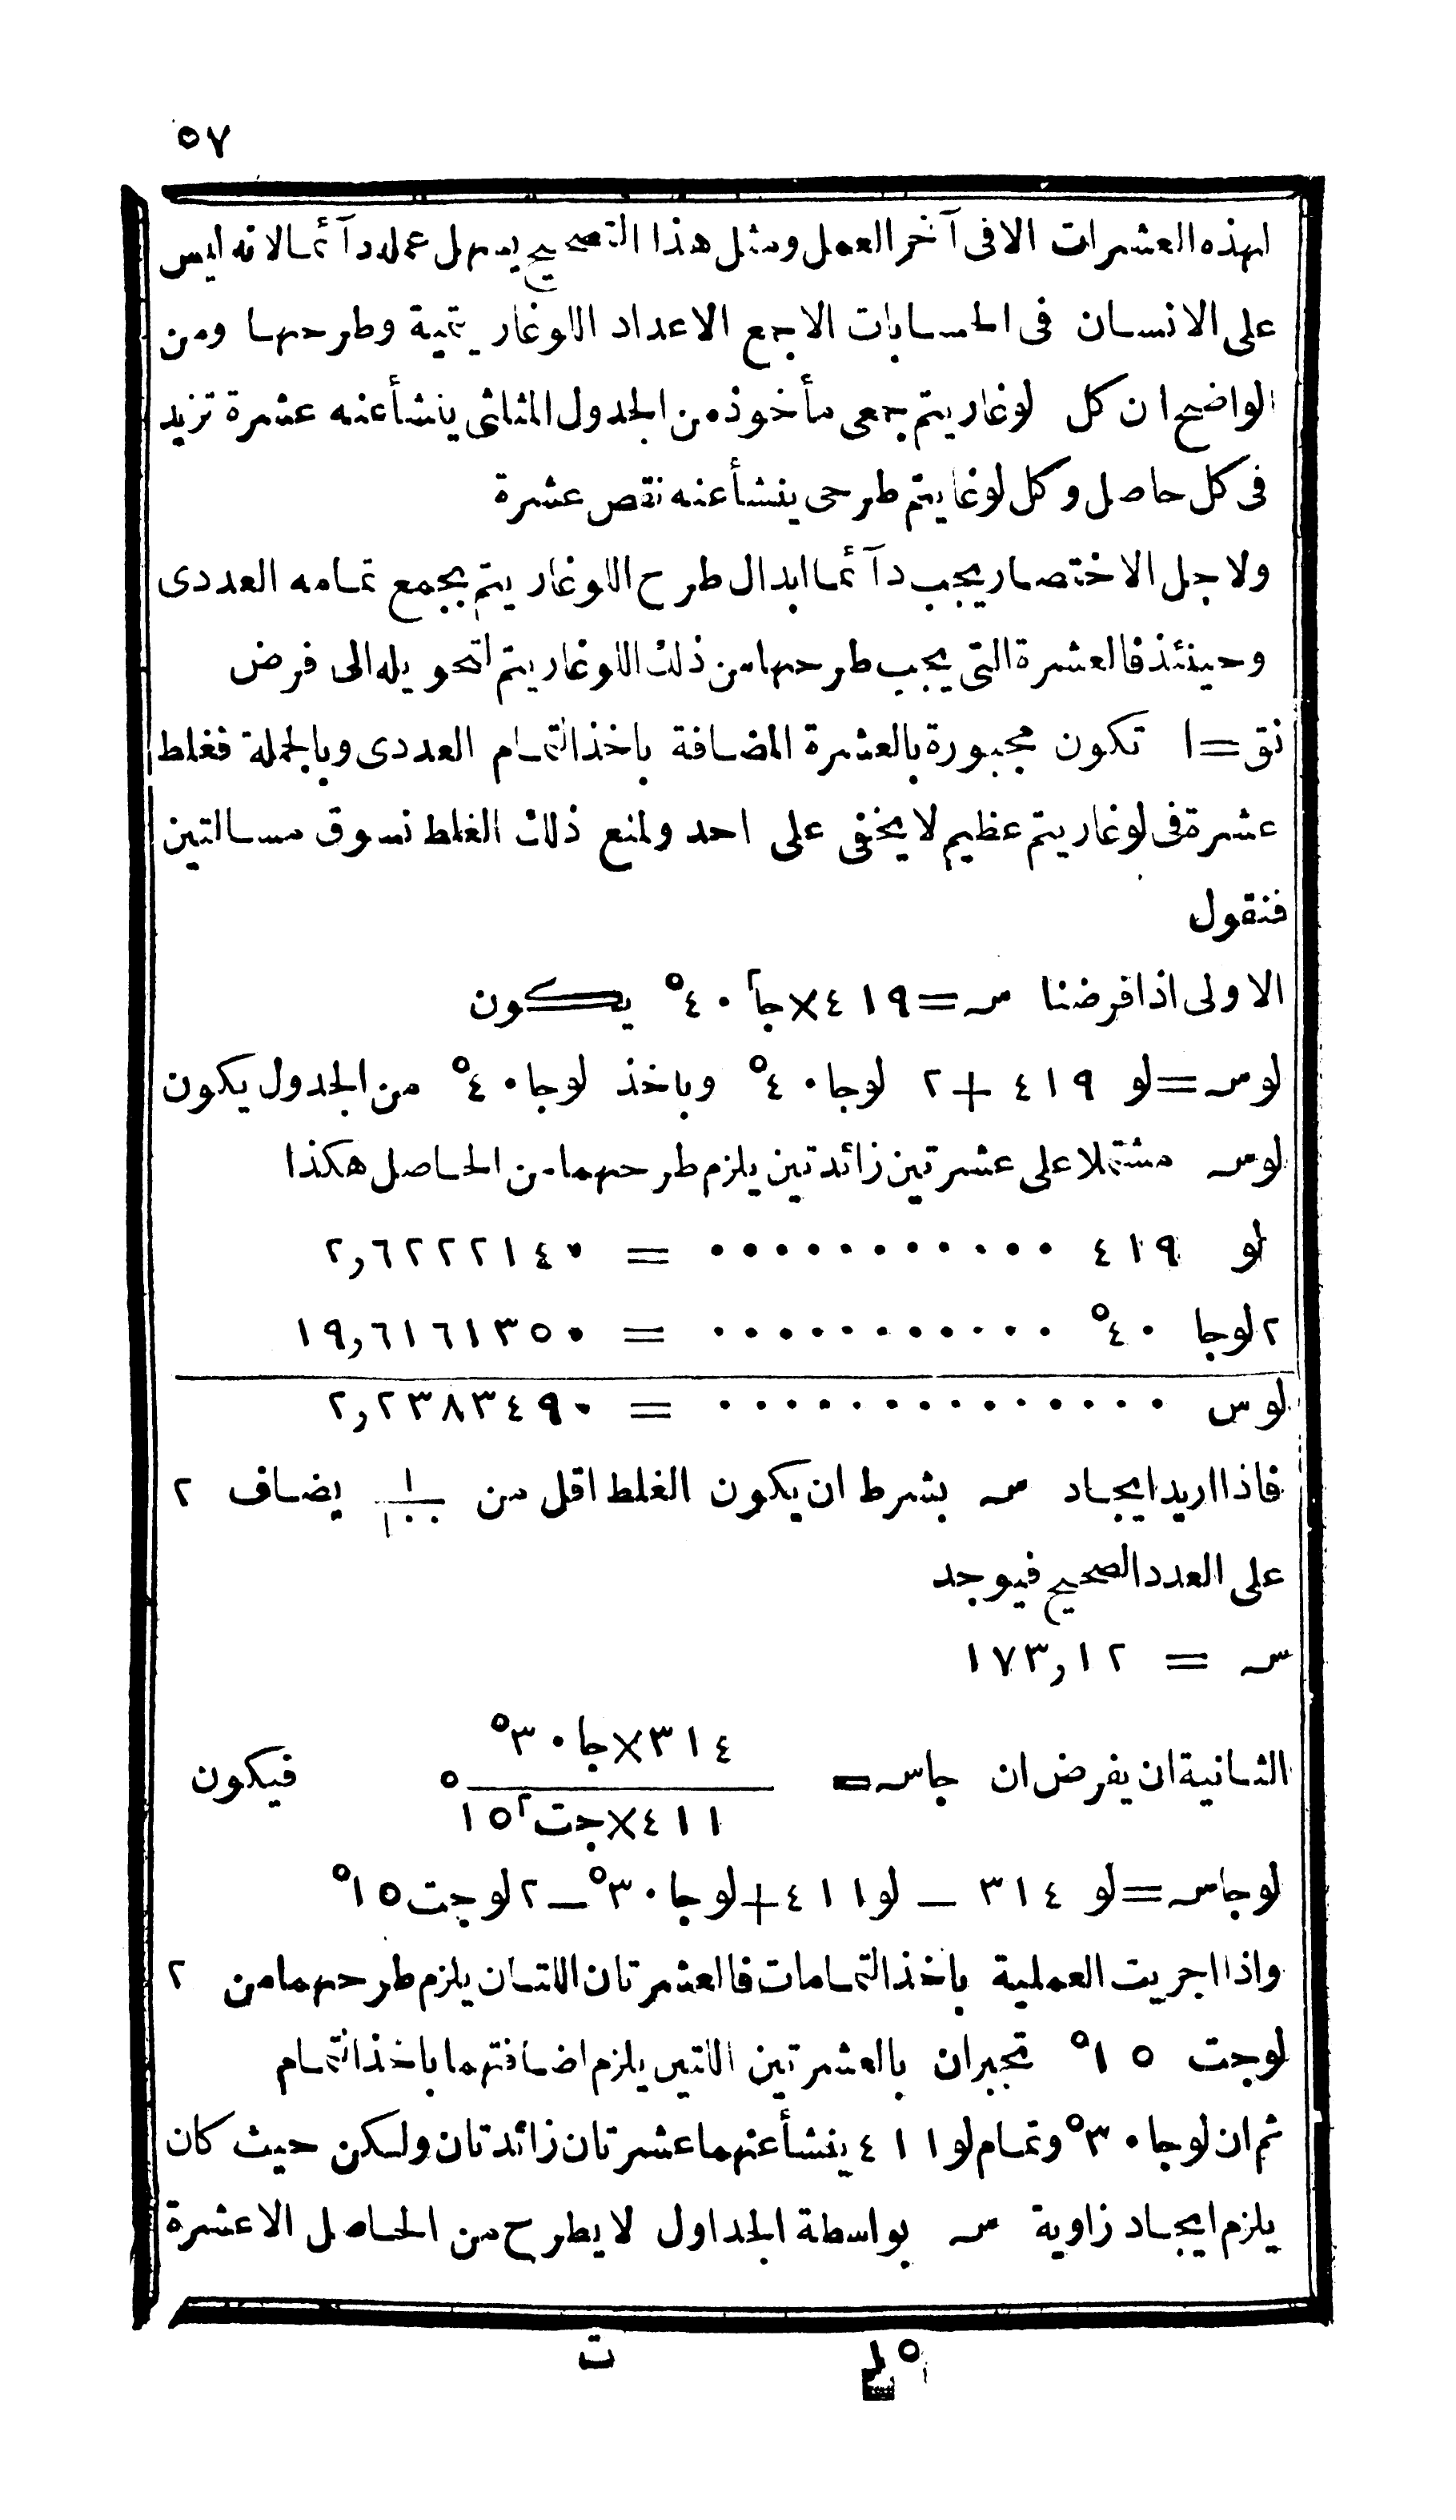 ٥٧
لهذه العشرات الا فى آخر العمل ومثل هذا التصحيح يسهل عمله دآئما لانه ليس
على الانسان فى الحسابات الا جمع الاعداد اللوغاريتمية وطرحها ومن
الواضح ان كل لوغاريتم جمعى مأخوذ من الجدول المثلثى ينشأ عنه عشرة تزيد
فى كل حاصل وكل لوغايتم طرحى ينشأ عنه نقص عشرة
ولاجل الاختصار يجب دآئما ابدال طرح اللوغاريتم بجمع تمامه العددى
وحينئذ فالعشرة التى يجب طرحها من ذلك اللوغاريتم لتحويله الى فرض
نق = ١ تكون مجبورة بالعشرة المضافة باخذ التمام العددى وبالجملة فغلط
عشرة فى لوغاريتم عظيم لا يخفى على احد ولمنع ذلك الغلط نسوق مسالتين
فنقول
الاولى اذا فرضنا س = ٤١٩ × جا٢ ٤٠° يكون
لو س = لو ٤١٩ + ٢ لوجا ٤٠° وباخذ لوجا ٤٠° من الجدول يكون
لو س مشتملا على عشرتين زائدتين يلزم طرحهما من الحاصل هكذا
لو ٤١٩ ........... = ٢,٦٢٢٢١٤٠
٢ لوجا ٤٠° ........... = ١٩,٦١٦١٣٥٠
لو س .............. = ٢,٢٣٨٣٤٩٠
فاذا اريد ايجاد س بشرط ان يكون الغلط اقل من ١/١٠٠ يضاف ٢
على العدد الصحيح فيوجد
س = ١٧٣,١٢
الثانية ان يفرض ان جاس = ٣١٤ × جا ٣٠° / ٤١١ × جت٢ ١٥° فيكون
لوجاس = لو ٣١٤ – لو ٤١١ + لوجا ٣٠° – ٢ لوجت ١٥°
واذا اجريت العملية باخذ التمامات فالعشرتان اللتان يلزم طرحهما من ٢
لوجت ١٥° تجبران بالعشرتين اللتين يلزم اضافتهما باخذ التمام
ثم ان لوجا ٣٠° وتمام لو ٤١١ ينشأ عنهما عشرتان زائدتان ولكن حيث كان
يلزم ايجاد زاوية س بواسطة الجداول لا يطرح من الحاصل الا عشرة
ت